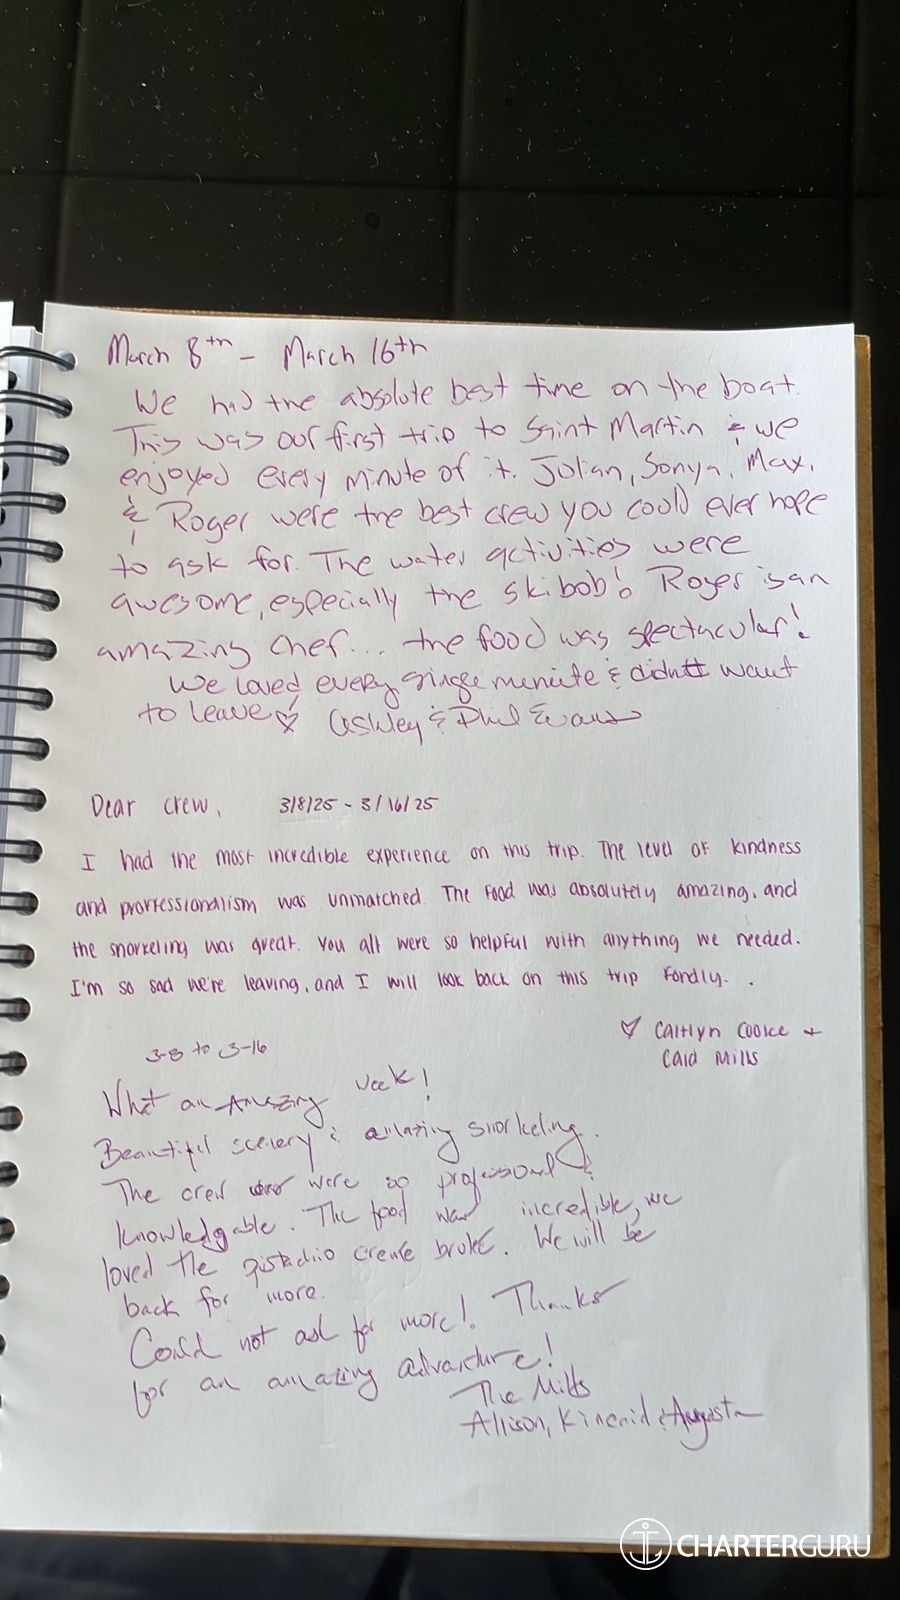 March 8th - March 16th
We had the absolute best time on the boat.
This was our first trip to Saint Martin & we
enjoyed every minute of it. Julian, Sonya, Max,
& Roger were the best crew you could ever hope
to ask for. The water activities were
awesome, especially the skibob! Roger is an
amazing chef... the food was spectacular!
We loved every single minute & didn't want
to leave! ♡ Ashley & Phil Evans
Dear crew, 3/8/25 - 3/16/25
I had the most incredible experience on this trip. The level of kindness
and proffessionalism was unmatched. The food was absolutely amazing, and
the snorkeling was great. You all were so helpful with anything we needed.
I'm so sad we're leaving, and I will look back on this trip fondly.
♡ Caitlyn Cooke +
Caid Mills
3-8 to 3-16
What an Amazing week!
Beautiful scenery & amazing snorkeling.
The crew were so professional &
knowledgable. The food was incredible, we
loved the pistachio creme brule. We will be
back for more.
Could not ask for more! Thanks
for an amazing advanture!
The Mills
Allison, Kincaid & Augusta
CHARTERGURU